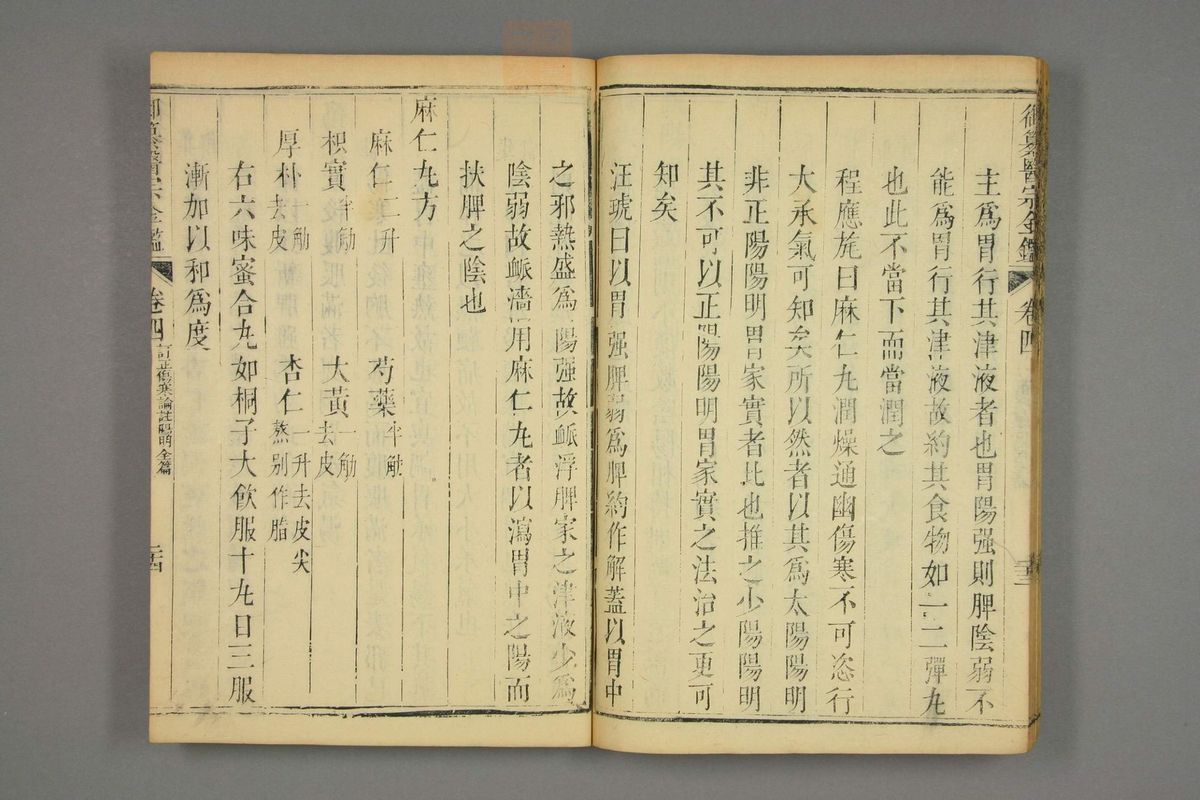 御纂醫宗金鑑 卷四 二十三
主爲胃行其津液者也胃陽强則脾陰弱不
能爲胃行其津液故約其食物如一二彈丸
也此不當下而當潤之
程應旄曰麻仁丸潤燥通幽傷寒不可恣行
大承氣可知矣所以然者以其爲太陽陽明
非正陽陽明胃家實者比也推之少陽陽明
其不可以正陽陽明胃家實之法治之更可
知矣
汪琥曰以胃强脾弱爲脾約作解蓋以胃中
之邪熱盛爲陽强故脈浮脾家之津液少爲
陰弱故脈濇用麻仁丸者以瀉胃中之陽而
扶脾之陰也
麻仁丸方
麻仁二升 芍藥半觔
枳實半觔 大黃一觔去皮
厚朴一觔去皮 杏仁一升去皮尖熬別作脂
右六味蜜合丸如桐子大飮服十丸日三服
漸加以和爲度
御纂醫宗金鑑 卷四 訂正傷寒論註陽明全篇 二十四